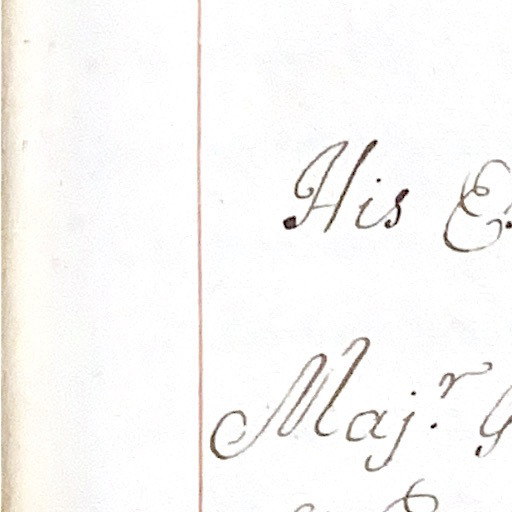 His E
Maj.r G